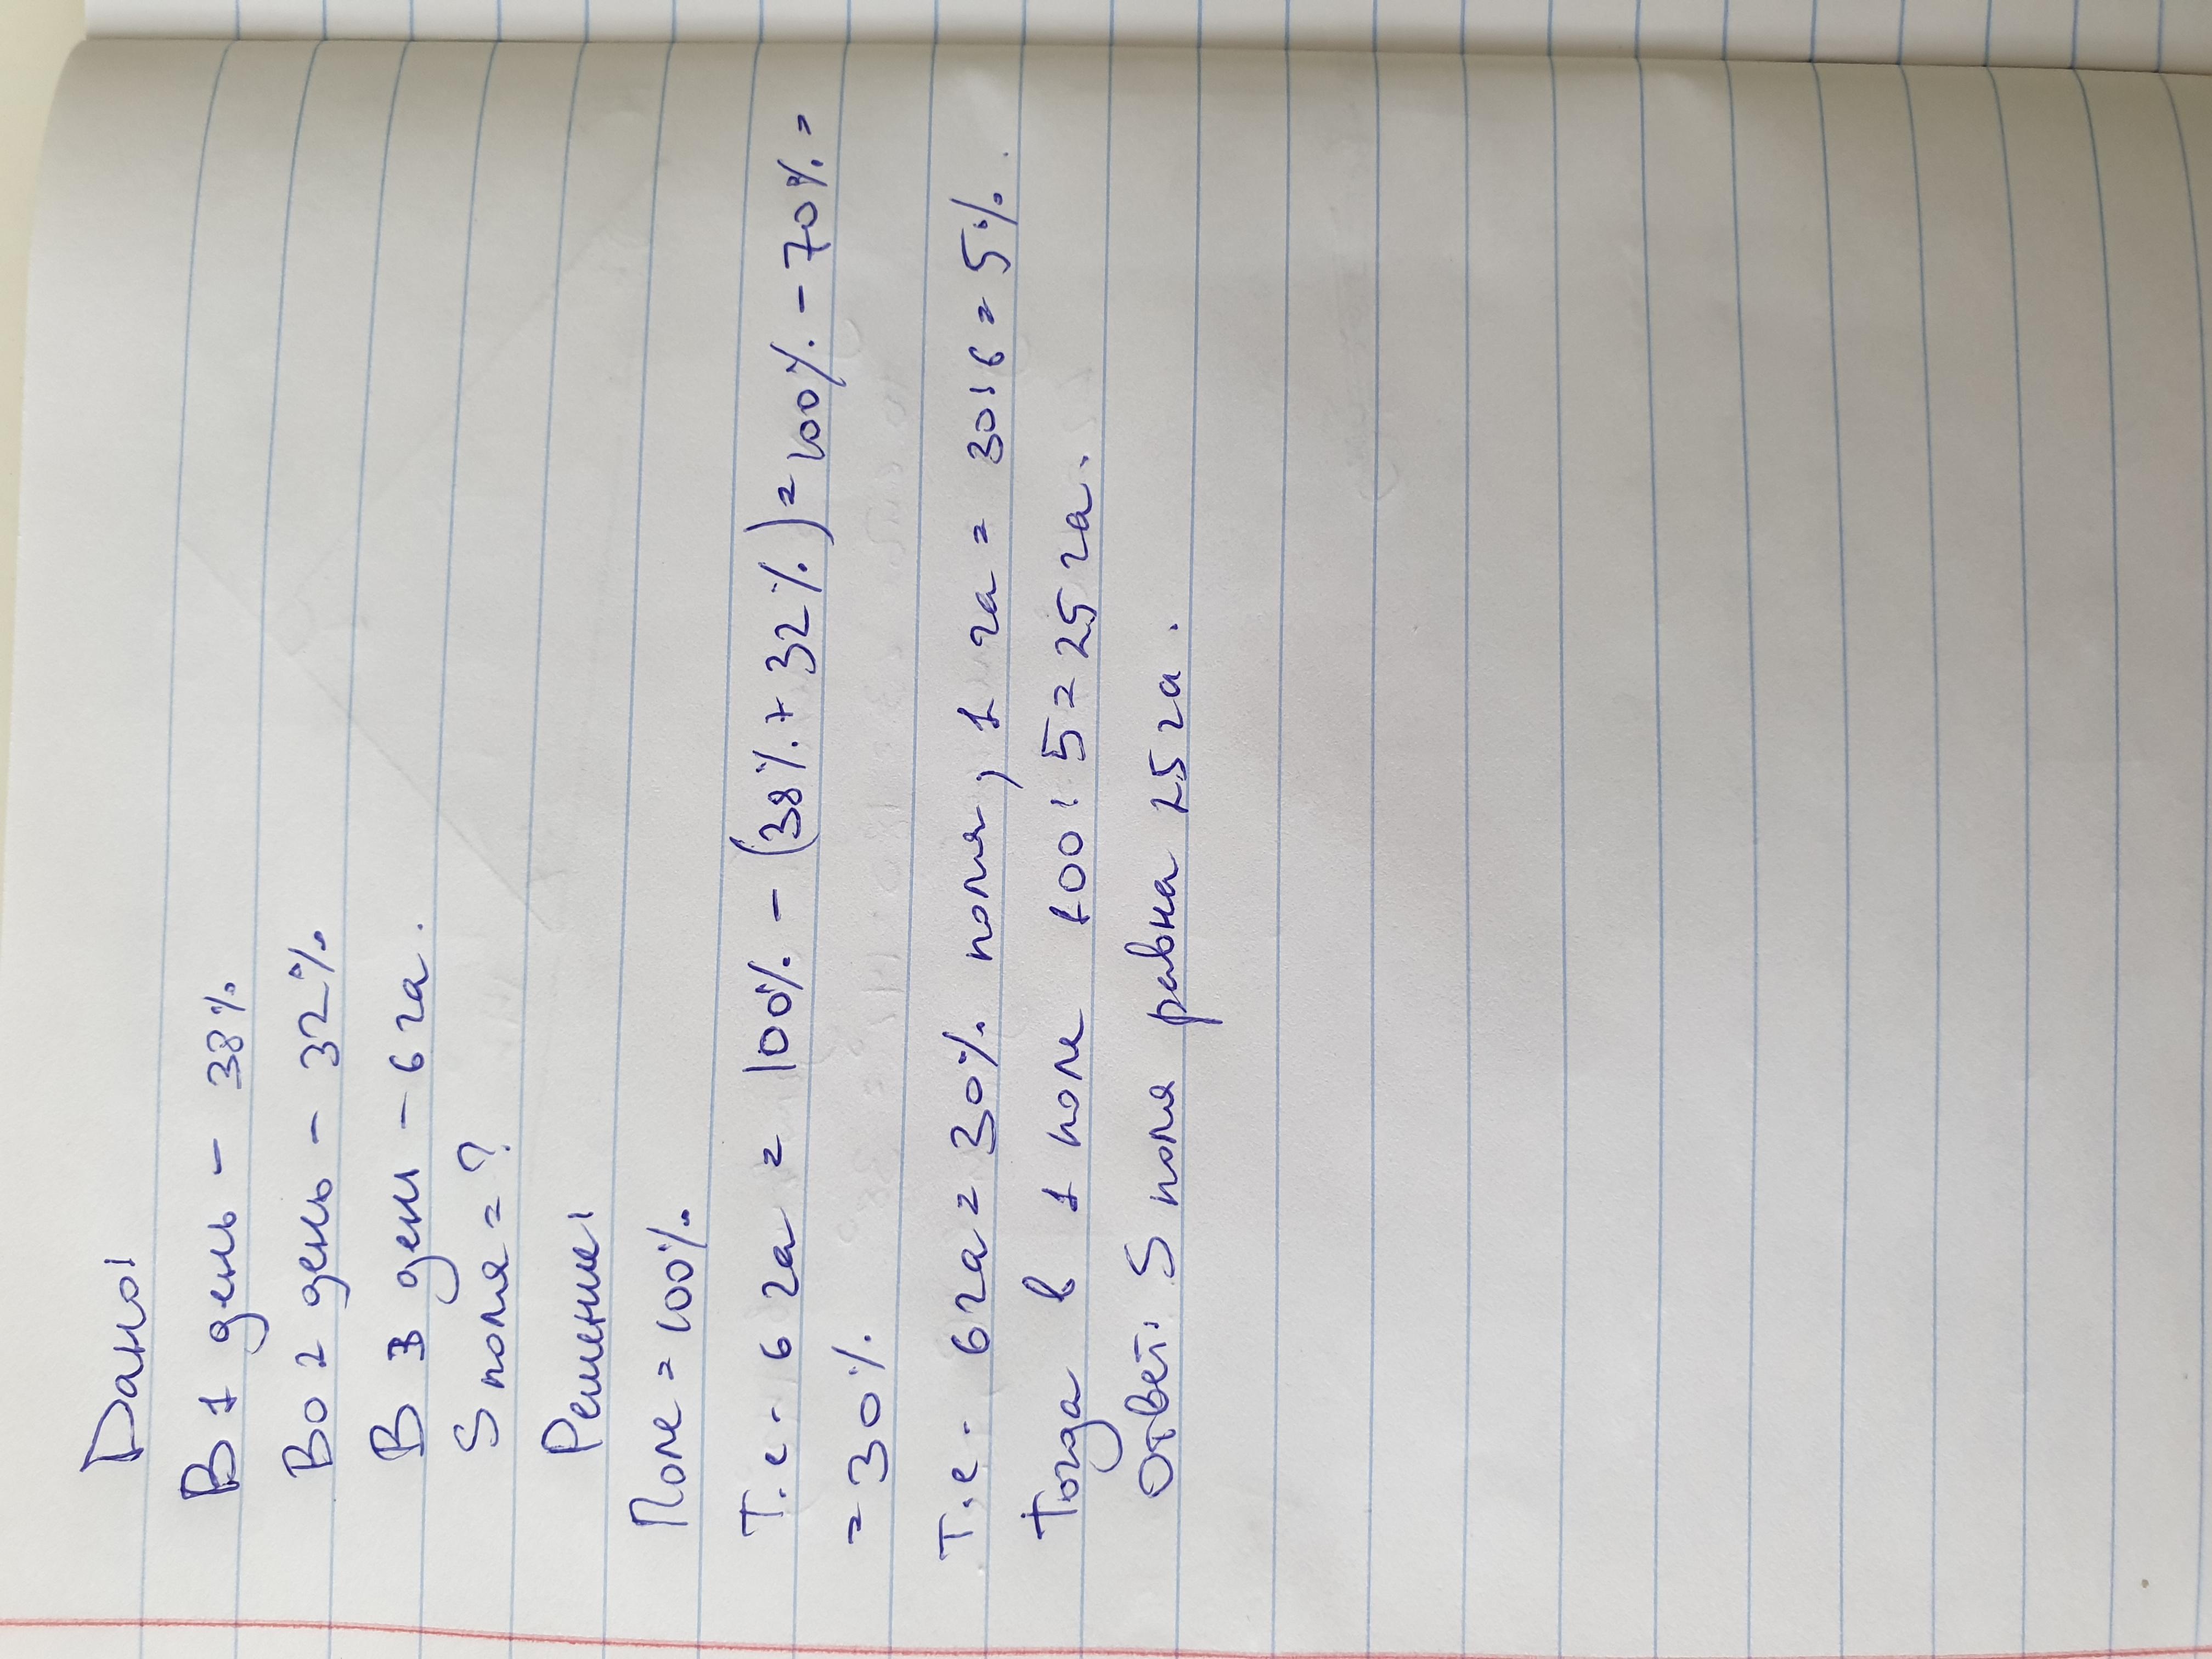 Дано:
В 1 день - 38%
Во 2 день - 32%
В 3 день - 6 га.
S поля = ?
Решение:
Поле = 100%
Т.е. 6 га = 100% - (38% + 32%) = 100% - 70% =
= 30%.
Т.е. 6 га = 30% поля, 1 га = 30 : 6 = 5%.
Тогда в 1 поле 100 : 5 = 25 га.
Ответ: S поля равна 25 га.